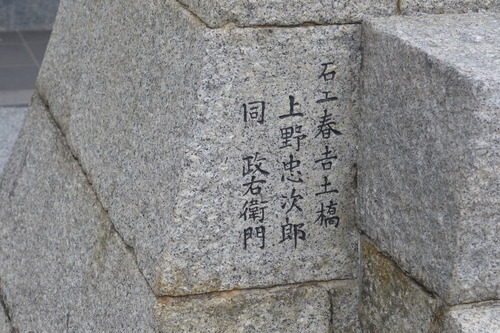 石工春𠮷土橋
上野忠次郎
同 政右衛門